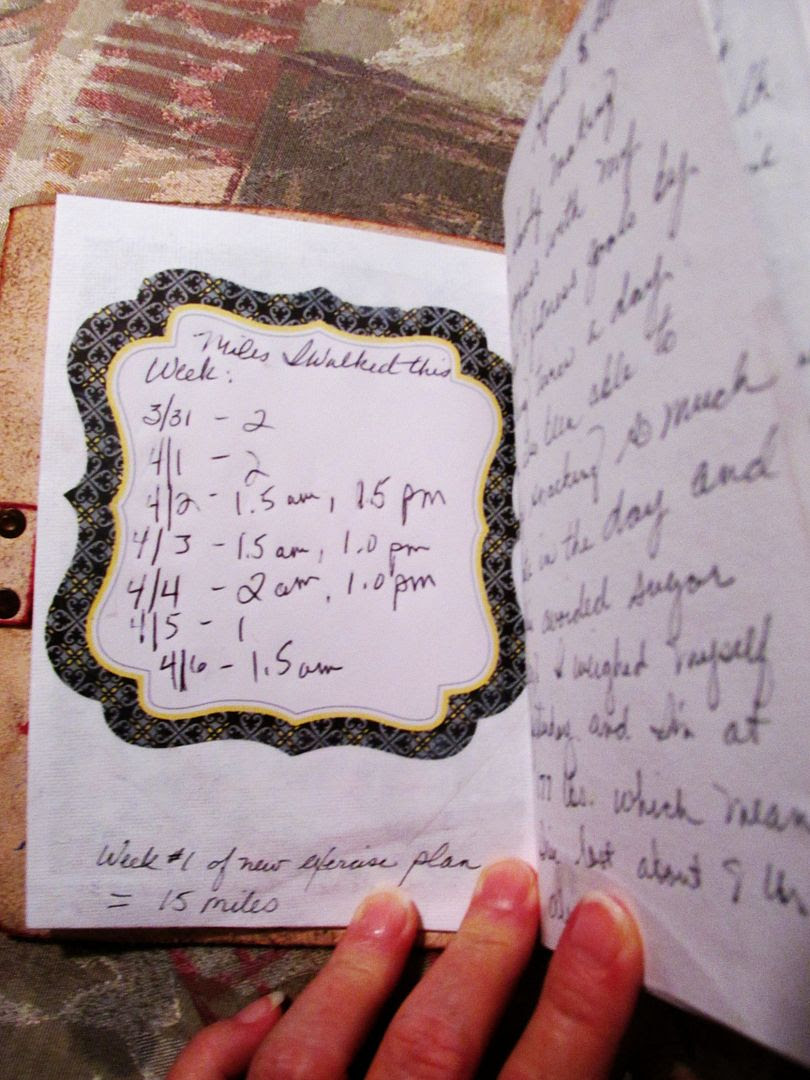 Miles I Walked this
Week:
3/31 - 2
4/1 - 2
4/2 - 1.5 am, 1.5 pm
4/3 - 1.5 am, 1.0 pm
4/4 - 2 am, 1.0 pm
4/5 - 1
4/6 - 1.5 am
Week #1 of new exercise plan
= 15 miles
April
making
with my
fitness goals by
a day.
been able to
snacking so much
in the day and
avoided sugar
I weighed myself
and I'm at
lbs. which mean
lost about